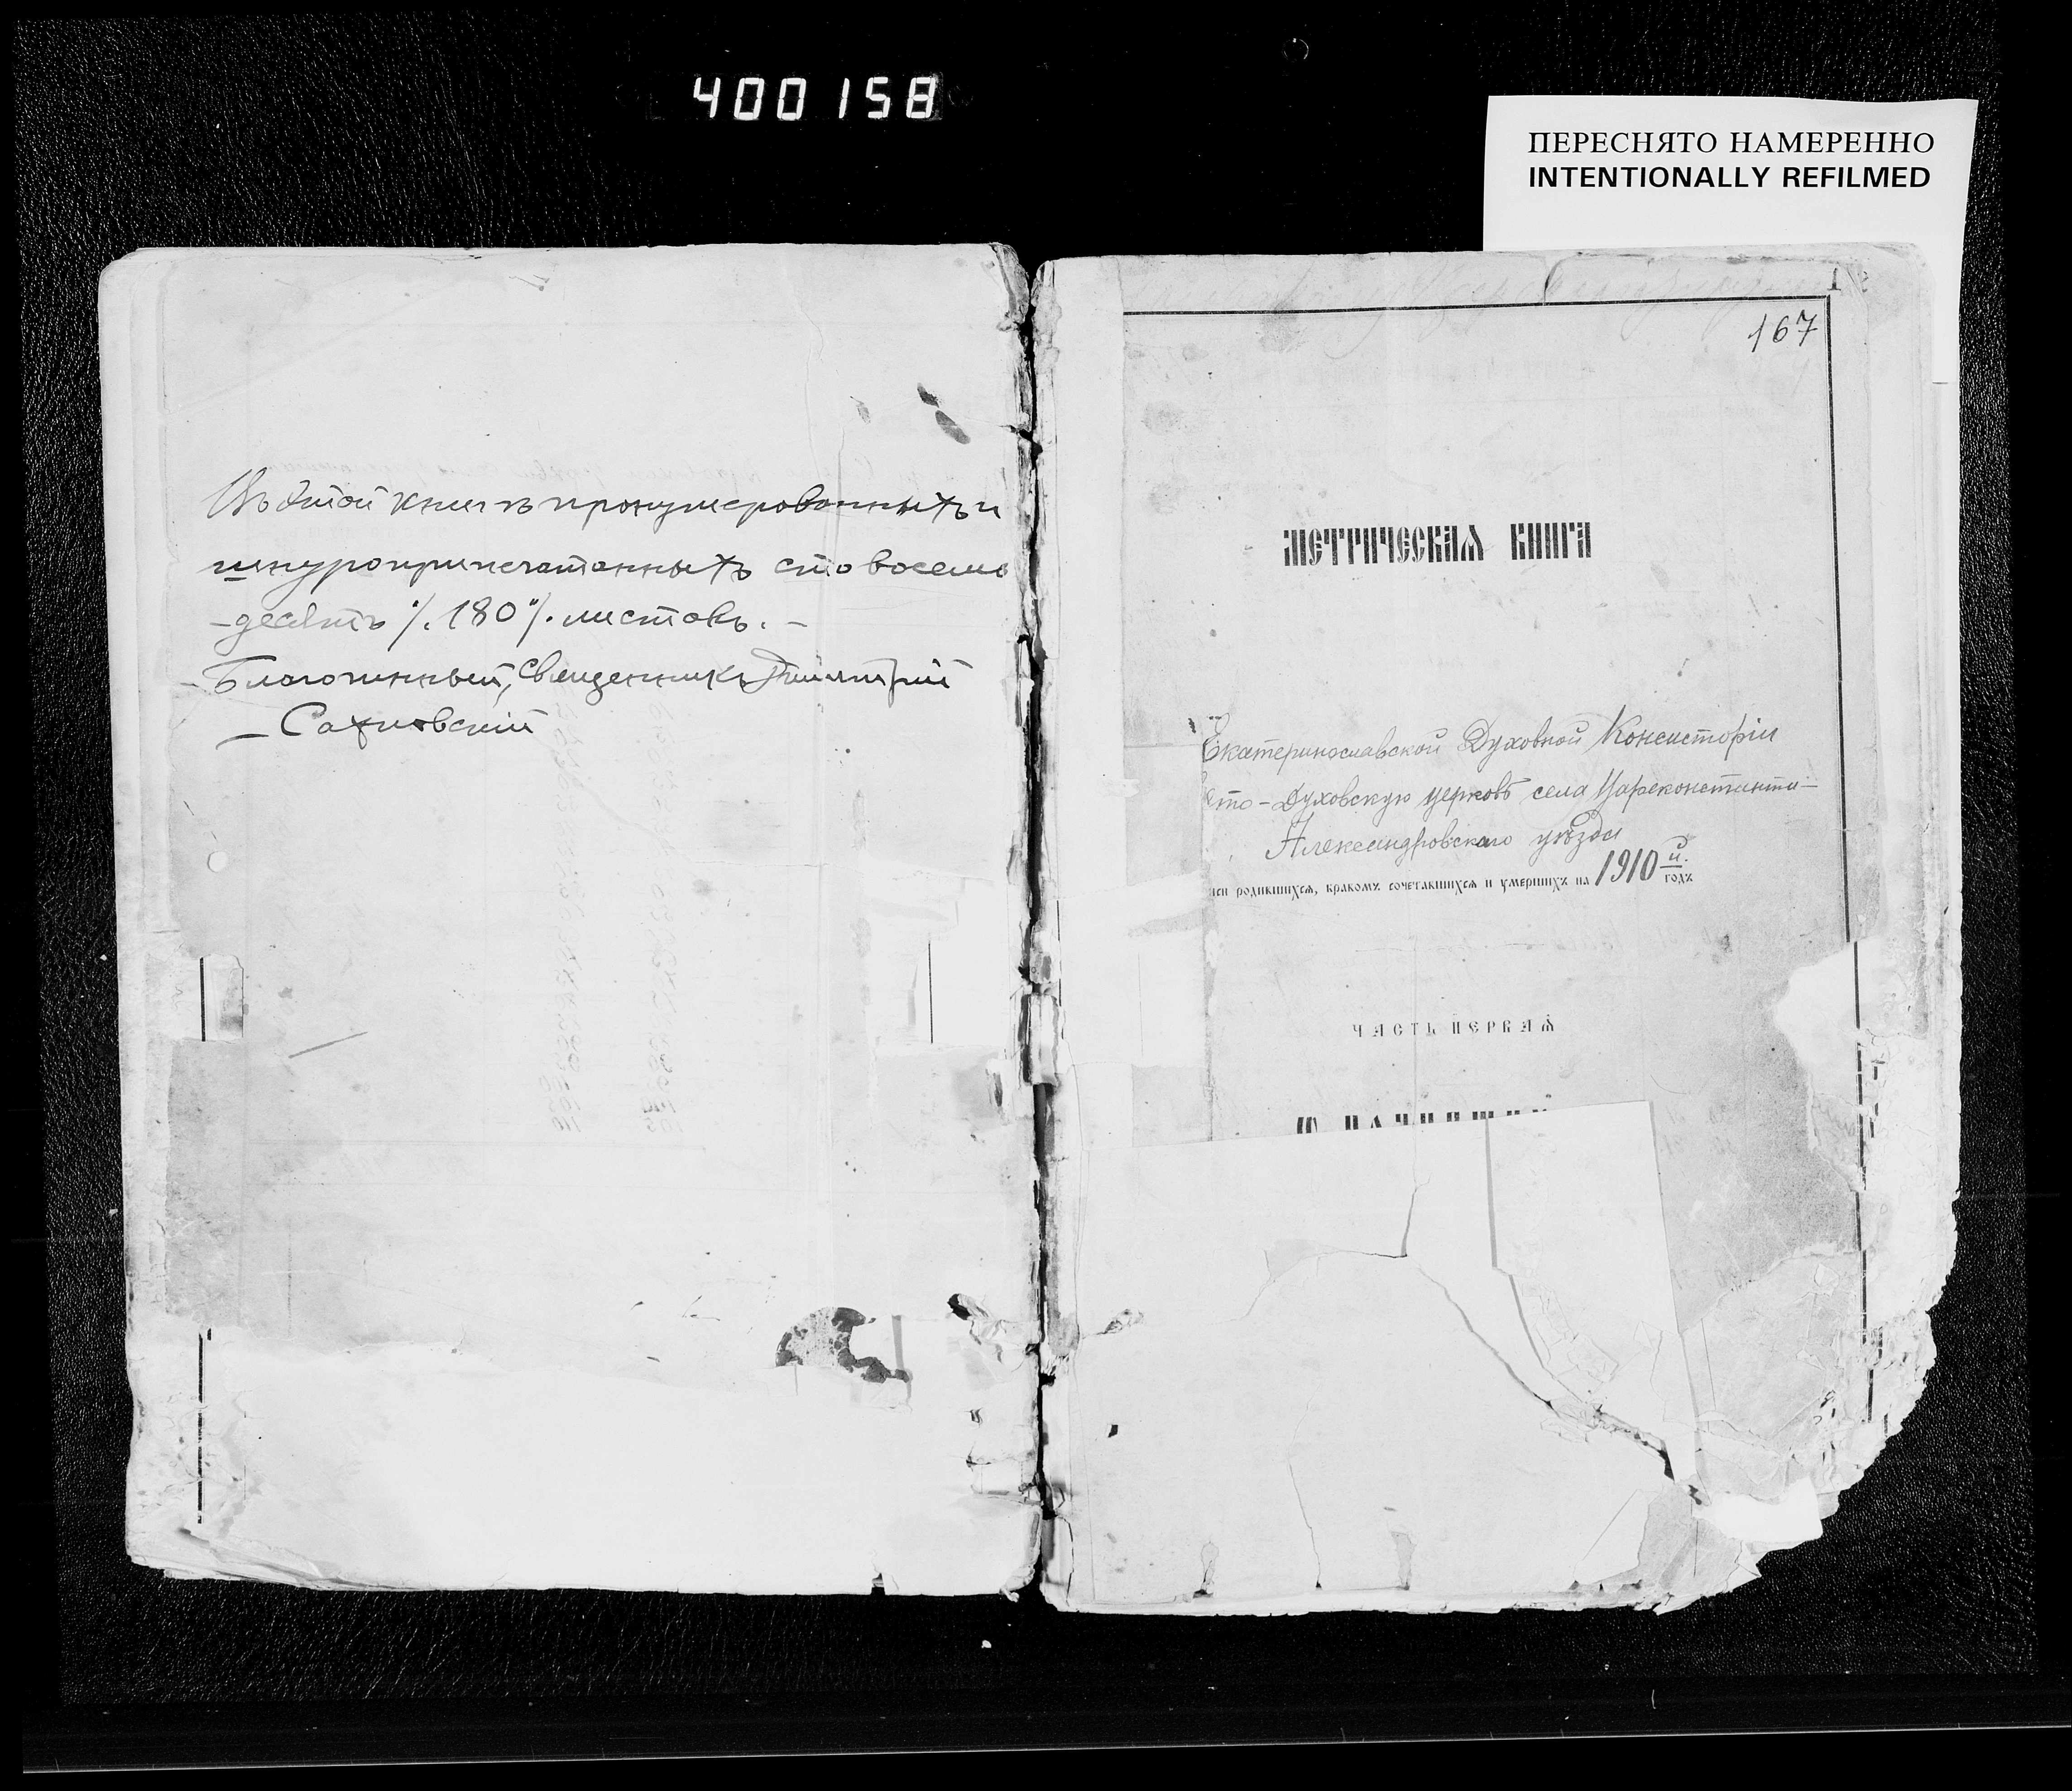 400158
ПЕРЕСНЯТО НАМЕРЕННО
INTENTIONALLY REFILMED
Въ этой книгѣ пронумерованныхъ и
шнуроприпечатанныхъ сто восемь
-десятъ /. 180 /. листовъ. -
Благочинный, Священникъ Димитрій
Сахновскій
1
167
МЕТРИЧЕСКАЯ КНИГА
Екатеринославской Духовной Консисторіи
-Духовскую церковь села Цареконстанти-
Александровскаго уѣзда
родившихся, бракомъ сочетавшихся и умершихъ на 1910 й. годъ
ЧАСТЬ ПЕРВАЯ